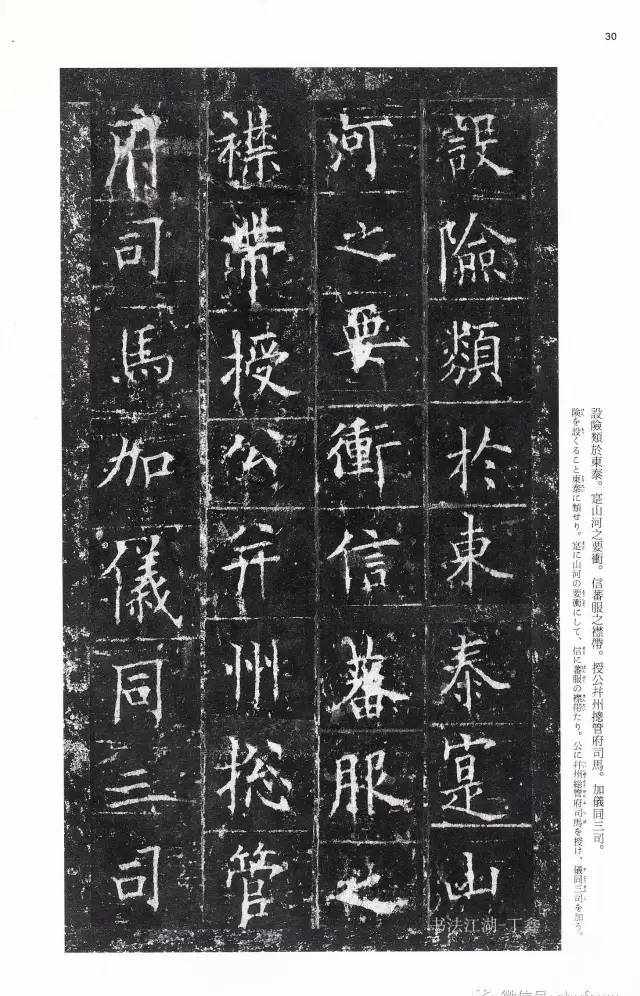 30
設險類於東泰寔山
河之要衝信蕃服之
襟帶授公并州捴管
府司馬加儀同三司
設險類於東泰。寔山河之要衝。信蕃服之襟帶。授公幷州摠管府司馬。加儀同三司。
険を設くること東泰に類せり。寔に山河の要衝にして、信に蕃服の襟帯たり。公に幷州総管府司馬を授け、儀同三司を加う。
书法江湖-丁鑫